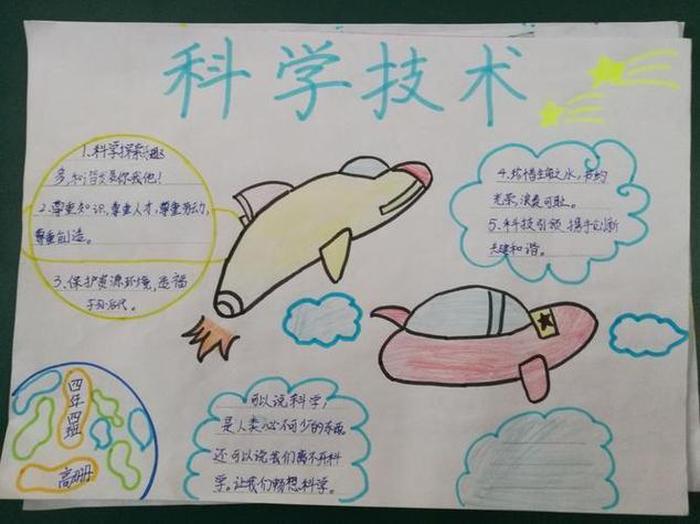 科学技术
1.科学探索趣
多,知识共享你我他!
2.尊重知识,尊重人才,尊重劳动,
尊重创造。
3.保护资源环境,造福
子孙后代。
4.珍惜生命之水,节约
光荣,浪费可耻。
5.科技引领,携手创新
共建和谐。
可以说科学,
是人类必不可少的东西,
还可以说我们离不开科
学。让我们畅想科学。
四年四班
高册册